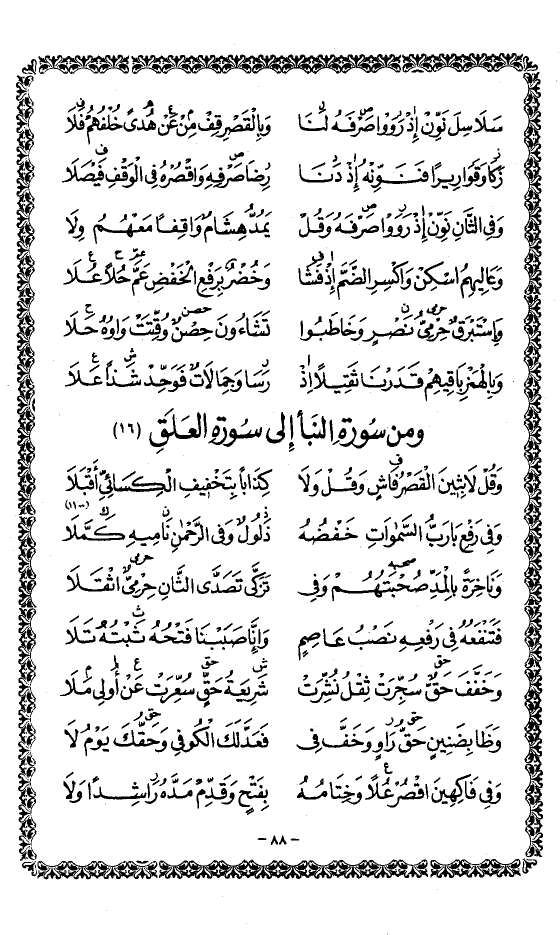 سَلَاسِلَ نَوِّنْ إِذْ رَوَوْا صَرْفَهُ لَنَا وَبِالْقَصْرِ قِفْ مِنْ عَنْ هُدًى خُلْفُهُمْ فَلَا
زَكَا وَقَوَارِيرًا فَنَوِّنْهُ إِذْ دَنَا رِضَا صَرْفِهِ وَاقْصُرْهُ فِي الْوَقْفِ فَيْصَلَا
وَفِي الثَّانِ نَوِّنْ إِذْ رَوَوْا صَرْفَهُ وَقُلْ يَمُدُّ هِشَامٌ وَاقِفًا مَعْهُمُ وِلَا
وَعَالِيهِمُ اسْكِنْ وَاكْسِرِ الضَّمَّ إِذْ فَشَا وَخُضْرٌ بِرَفْعِ الْخَفْضِ عَمَّ حُلًا عُلَا
وَإِسْتَبْرَقٌ حِرْمِيُّ نَصْرٍ وَخَاطَبُوا تَشَاءُونَ حِصْنٌ وُقِّتَتْ وَاوُهُ حَلَا
وَبِالْهَمْزِ بَاقِيهِمْ قَدَرْنَا ثَقِيلًا إِذْ رَسَا وَجِمَالَاتٌ فَوَحِّدْ شَذًا عَلَا
ومن سورة النبأ إلى سورة العلق (١٦)
وَقُلْ لَابِثِينَ الْقَصْرُ فَاشٍ وَقُلْ وَلَا كِذَابًا بِتَخْفِيفِ الْكِسَائِيِّ أَقْبَلَا
(١١٠٠)
وَفِي رَفْعِ بَا رَبُّ السَّمٰوَاتِ خَفْضُهُ ذَلُولٌ وَفِي الرَّحْمٰنِ نَامِيهِ كَمَّلَا
وَنَاخِرَةً بِالْمَدِّ صُحْبَتُهُمْ وَفِي تَزَكَّى تَصَدَّى الثَّانِ حِرْمِيٌّ اثْقَلَا
فَتَنْفَعُهُ فِي رَفْعِهِ نَصْبُ عَاصِمٍ وَإِنَّا صَبَبْنَا فَتْحُهُ ثَبْتُهُ تَلَا
وَخَفَّفَ حَقٌّ سُجِّرَتْ ثِقْلُ نُشِّرَتْ شَرِيعَةُ حَقٍّ سُعِّرَتْ عَنْ أُولِي مَلَا
وَظَا بِضَنِينٍ حَقُّ رَاوٍ وَخَفَّ فِي فَعَدَّلَكَ الْكُوفِي وَحَقُّكَ يَوْمُ لَا
وَفِي فَاكِهِينَ اقْصُرْ عُلًا وَخِتَامُهُ بِفَتْحٍ وَقَدِّمْ مَدَّهُ رَاشِدًا وَلَا
- ٨٨ -